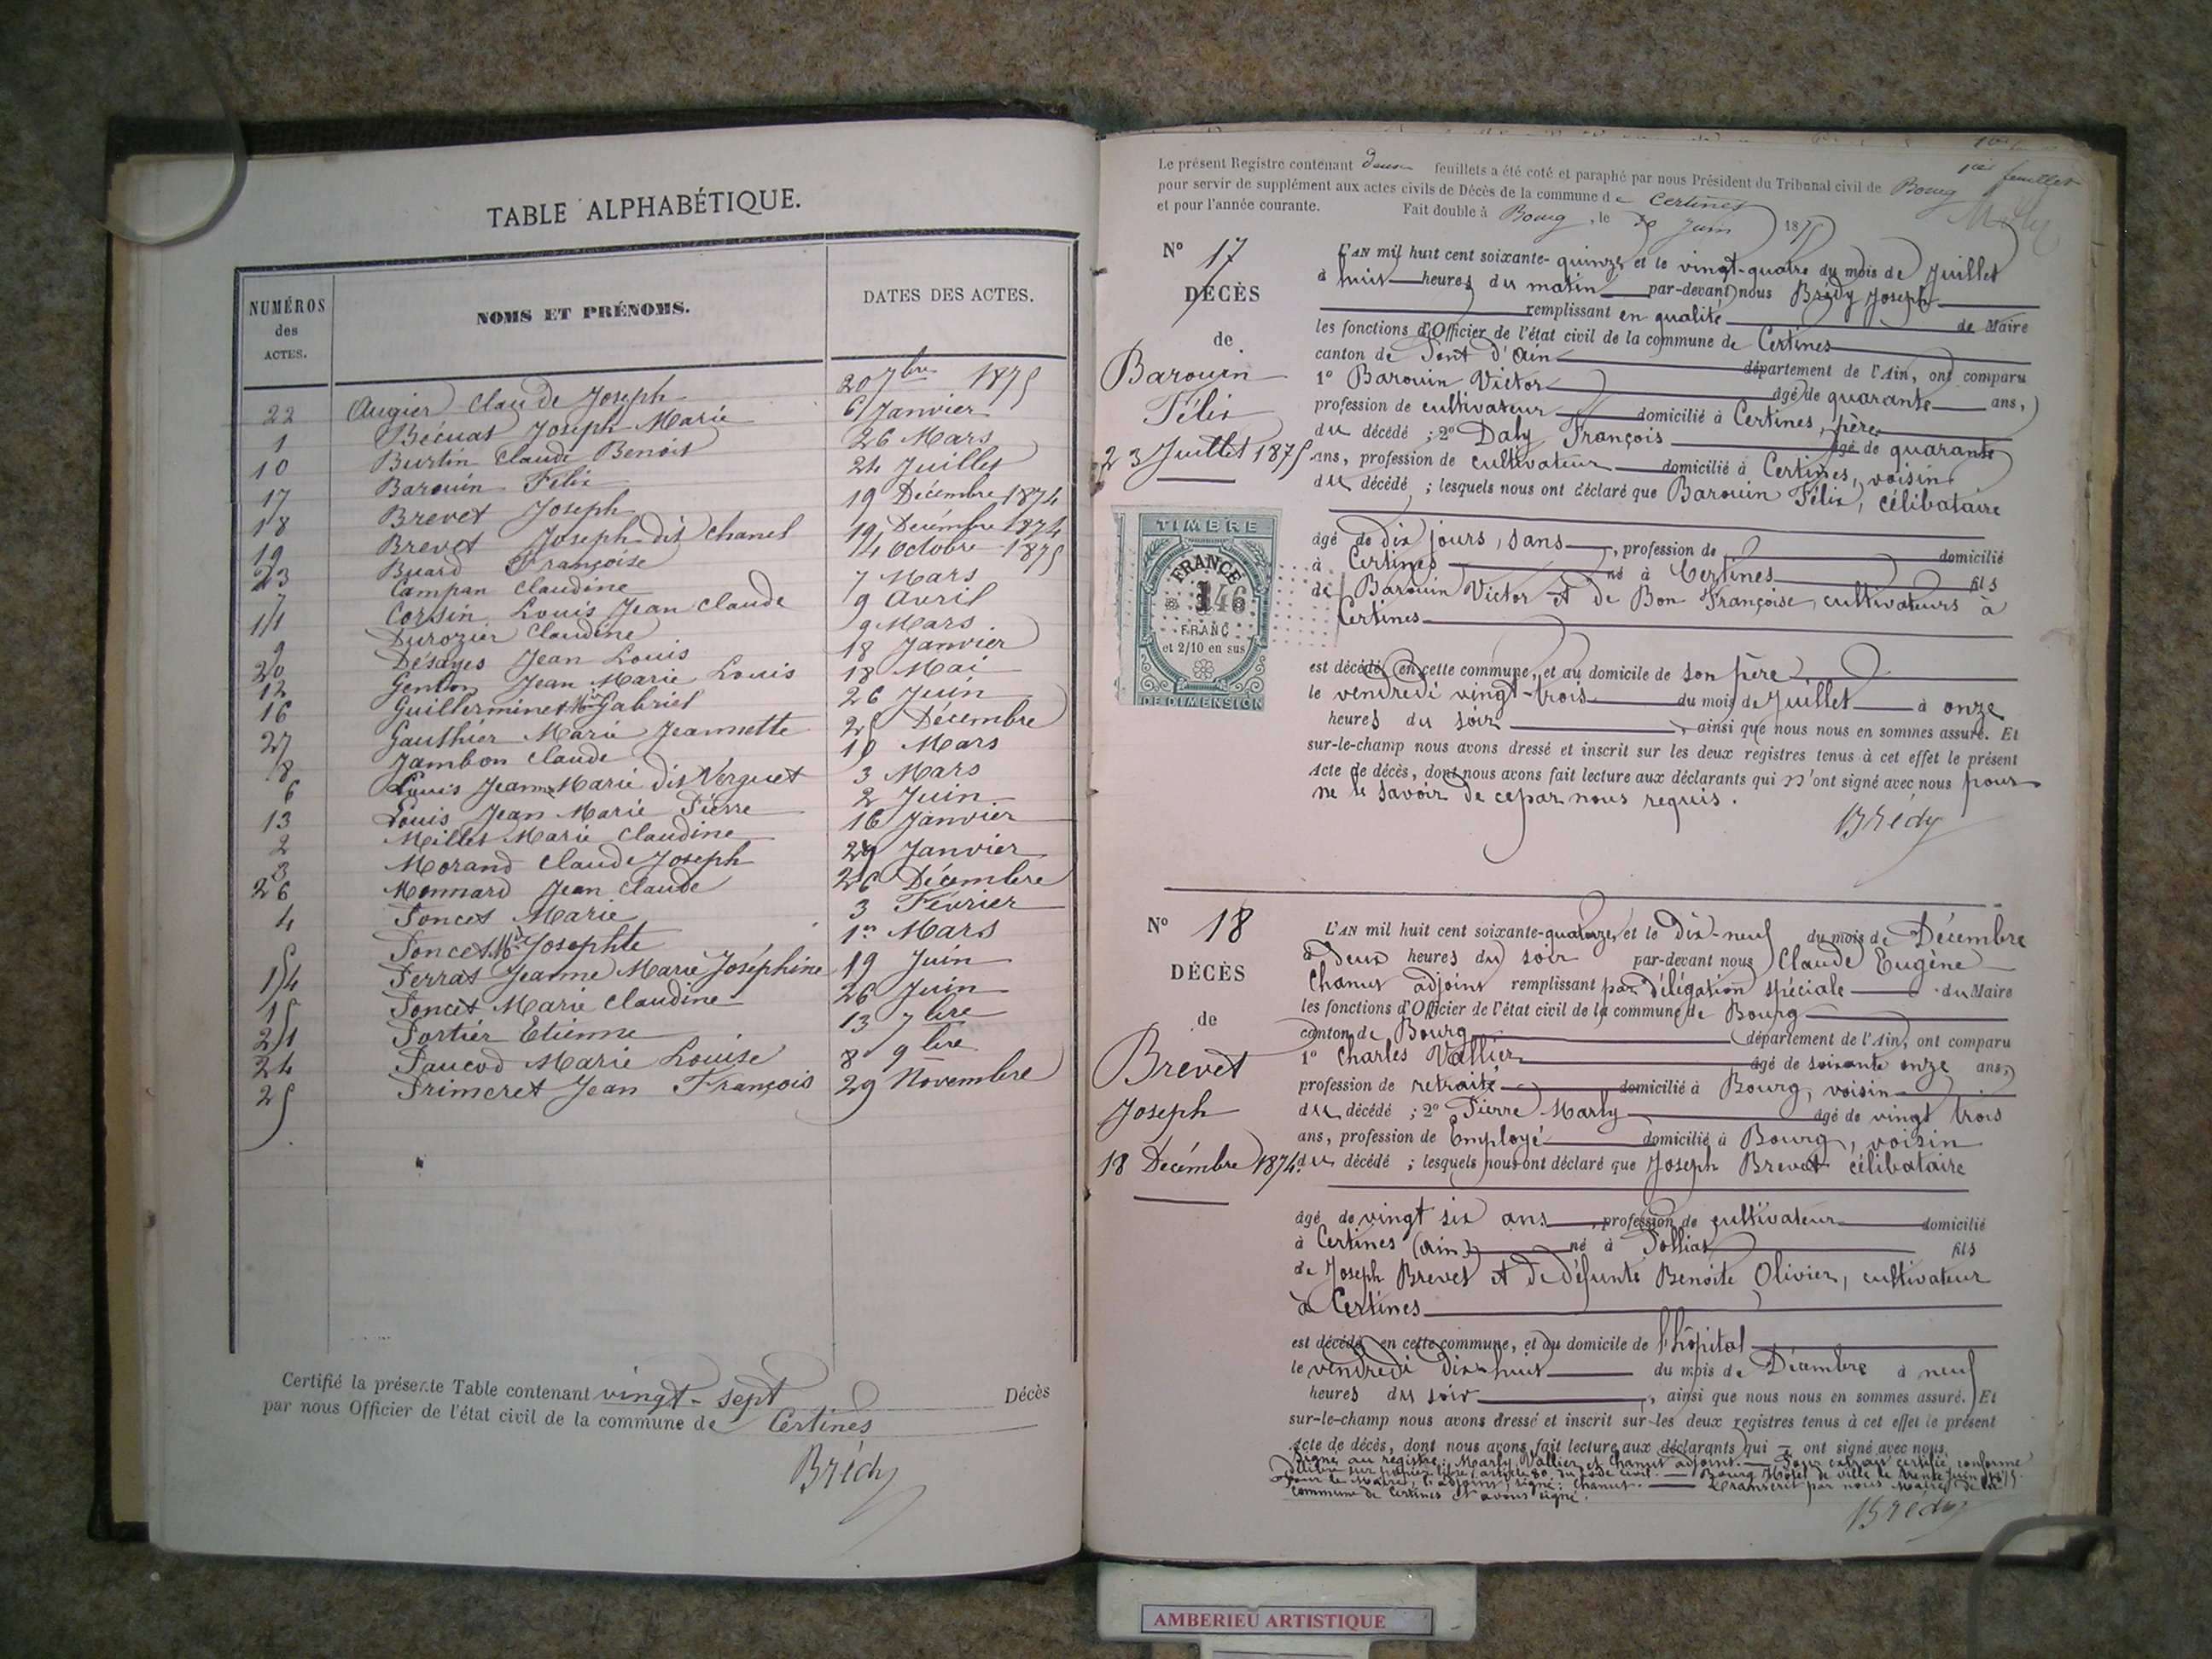 TABLE ALPHABÉTIQUE.
NUMÉROS des ACTES. NOMS ET PRÉNOMS. DATES DES ACTES.
22 Augier Claude Joseph 20 7bre 1875
1 Bécuat Joseph Marie 6 Janvier
10 Burtin Claude Benoit 26 Mars
17 Barouin Félix 24 Juillet
18 Brevet Joseph 19 Décembre 1874
19 Brevet Joseph dit Chanel 19 Décembre 1874
23 Buard Françoise 14 Octobre 1875
7 Campan Claudine 7 Mars
11 Corsin Louis Jean Claude 9 Avril
9 Durozier Claudine 9 Mars
20 Désayes Jean Louis 18 Janvier
12 Genton Jean Marie Louis 18 Mai
16 Guillerminet Gabriel 26 Juin
27 Gauthier Marie Jeannette 25 Décembre
8 Jambon Claude 10 Mars
6 Louis Jean Marie dit Verguet 3 Mars
13 Louis Jean Marie Pierre 2 Juin
2 Millet Marie Claudine 16 Janvier
3 Morand Claude Joseph 29 Janvier
26 Monnard Jean Claude 26 Décembre
4 Poncet Marie 3 Février
5 Poncet Mie Josephte 1er Mars
14 Perrat Jeanne Marie Joséphine 19 Juin
15 Poncet Marie Claudine 26 Juin
21 Portier Etienne 13 7bre
24 Paucod Marie Louise 8 9bre
25 Primeret Jean François 29 Novembre
Certifié la présente Table contenant vingt-sept Décès
par nous Officier de l'état civil de la commune de Certines
Brédy
1er feuillet
Le présent Registre contenant deux feuillets a été coté et paraphé par nous Président du Tribunal civil de Bourg
pour servir de supplément aux actes civils de Décès de la commune de Certines
et pour l'année courante. Fait double à Bourg, le 30 Juin 1875
N° 17
DÉCÈS
de
Barouin
Félix
23 Juillet 1875
TIMBRE
FRANCE
1
FRANC
et 2/10 en sus
DE DIMENSION
L'AN mil huit cent soixante-quinze et le vingt-quatre du mois de Juillet
à huit heures du matin par-devant nous Brédy Joseph
remplissant en qualité de Maire
les fonctions d'Officier de l'état civil de la commune de Certines
canton de Pont d'Ain département de l'Ain, ont comparu
1° Barouin Victor âgé de quarante ans,
profession de cultivateur domicilié à Certines, père
du décédé ; 2° Daly François âgé de quarante
ans, profession de cultivateur domicilié à Certines, voisin
du décédé ; lesquels nous ont déclaré que Barouin Félix, célibataire
âgé de dix jours, sans, profession de domicilié
à Certines né à Certines fils
de Barouin Victor et de Bon Françoise, cultivateurs à
Certines
est décédé en cette commune, et au domicile de son père
le vendredi vingt-trois du mois de Juillet à onze
heures du soir, ainsi que nous nous en sommes assuré. Et
sur-le-champ nous avons dressé et inscrit sur les deux registres tenus à cet effet le présent
Acte de décès, dont nous avons fait lecture aux déclarants qui n'ont signé avec nous pour
ne le savoir de ce par nous requis.
Brédy
N° 18
DÉCÈS
de
Brevet
Joseph
18 Décembre 1874.
L'AN mil huit cent soixante-quatorze, et le Dix-neuf du mois de Décembre
à Deux heures du soir par-devant nous Claude Eugène
Chanut adjoint remplissant par délégation spéciale du Maire
les fonctions d'Officier de l'état civil de la commune de Bourg
canton de Bourg département de l'Ain, ont comparu
1° Charles Vallier âgé de soixante onze ans,
profession de retraité domicilié à Bourg, voisin
du décédé ; 2° Pierre Marly âgé de vingt trois
ans, profession de Employé domicilié à Bourg, voisin
du décédé ; lesquels nous ont déclaré que Joseph Brevet célibataire
âgé de vingt six ans, profession de cultivateur domicilié
à Certines (ain) né à Polliat fils
de Joseph Brevet et de défunte Benoite Olivier, cultivateur
à Certines
est décédé en cette commune, et au domicile de l'hôpital
le vendredi dix-huit du mois de Décembre à neuf
heures du soir, ainsi que nous nous en sommes assuré. Et
sur-le-champ nous avons dressé et inscrit sur les deux registres tenus à cet effet le présent
Acte de décès, dont nous avons fait lecture aux déclarants qui ont signé avec nous.
Signé au registre: Marly, Vallier et Chanut adjoint. — Pour extrait certifié conforme
Délivré sur papier libre, article 80 du code civil. — Bourg Hôtel de ville le trente Juin 1875
Pour le Maire, l'adjoint, signé: Chanut. — Transcrit par nous Maire de la
commune de Certines et avons signé.
Brédy
AMBERIEU ARTISTIQUE